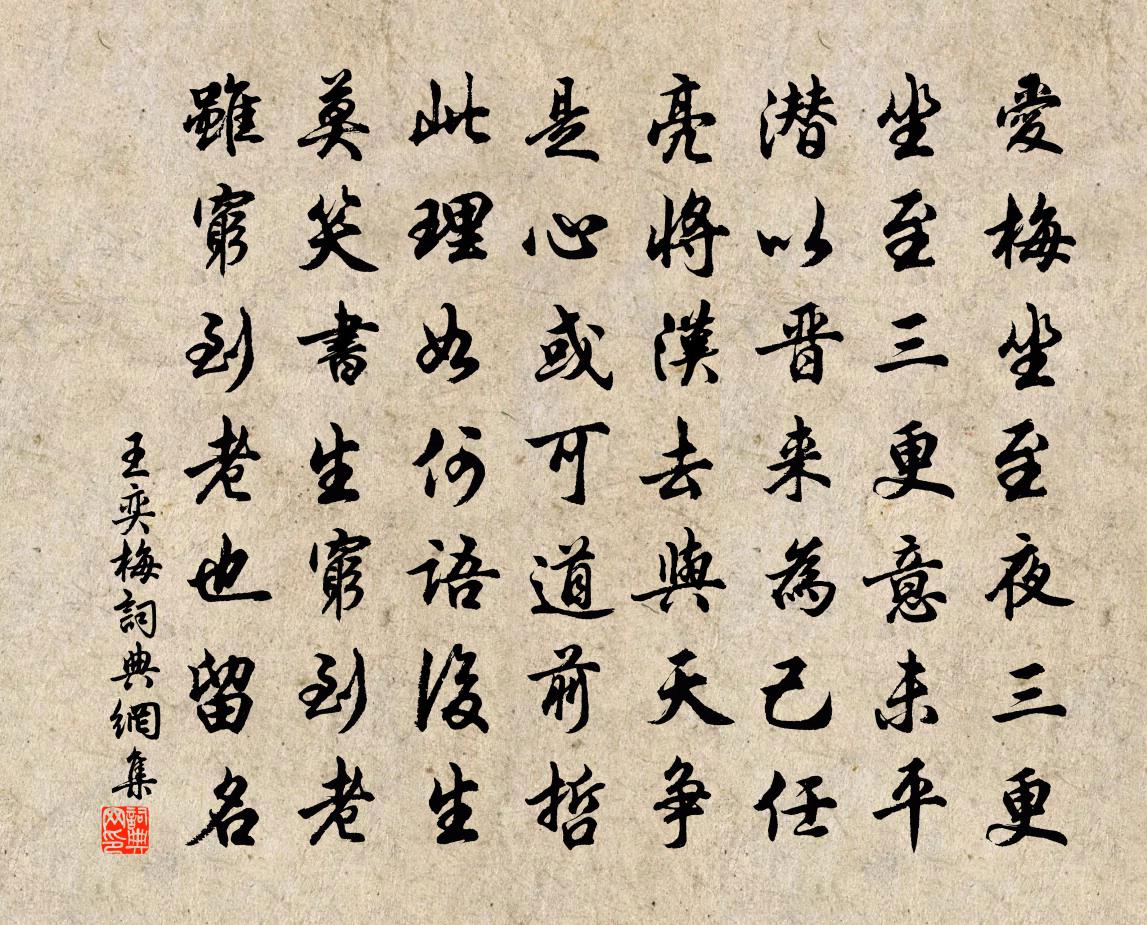 愛梅坐至夜三更
坐至三更意未平
潜以晋来為己任
亮將漢去與天争
是心或可道前哲
此理如何語後生
莫笑書生窮到老
雖窮到老也留名
王奕梅詞典網集
詞典网印